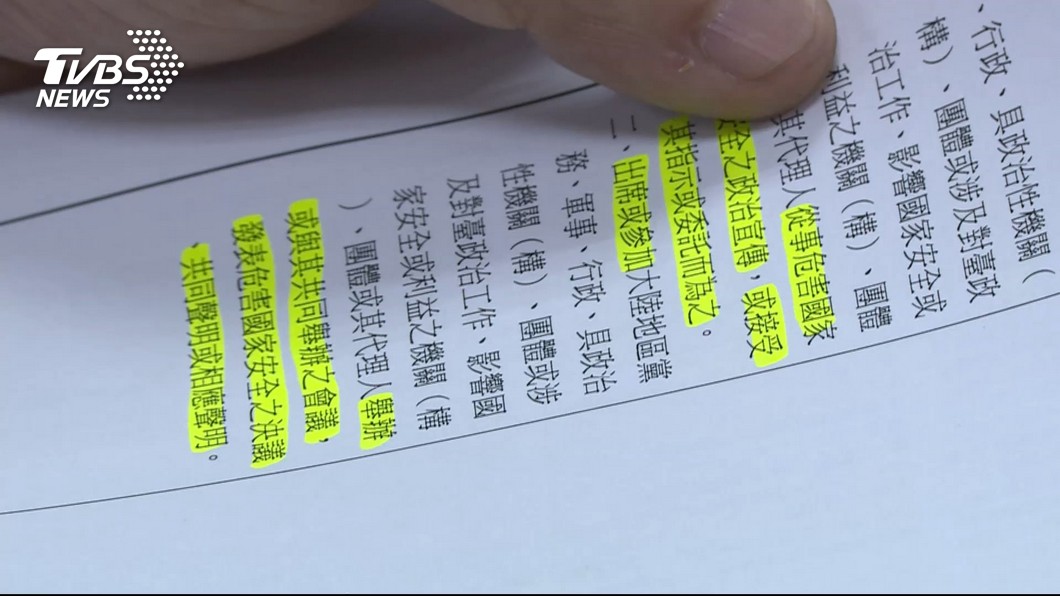 TVBS
NEWS
、行政、具政治性機關（
構）、團體或涉及對臺政
治工作、影響國家安全或
利益之機關（構）、團體
其代理人從事危害國家
安全之政治宣傳，或接受
其指示或委託而為之。
二、出席或參加大陸地區黨
務、軍事、行政、具政治
性機關（構）、團體或涉
及對臺政治工作、影響國
家安全或利益之機關（構
）、團體或其代理人舉辦
或與其共同舉辦之會議，
發表危害國家安全之決議
、共同聲明或相應聲明。